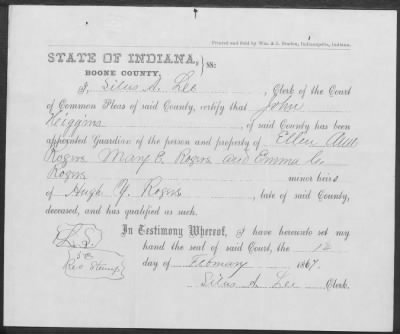 Printed and Sold by Wm. & J. Braden, Indianapolis, Indiana.
STATE OF INDIANA, } SS:
BOONE COUNTY,
I, Silas A. Lee, Clerk of the Court
of Common Pleas of said County, certify that John
Higgins, of said County has been
appointed Guardian of the person and property of Ellen Ann
Rogers Mary E. Rogers and Emma
Rogers minor heirs
of Hugh Y. Rogers, late of said County,
deceased, and has qualified as such.
In Testimony Whereof, I have hereunto set my
L.S.
hand the seal of said Court, the 12
5 ct
Rev Stamp
day of February 1867.
Silas A. Lee Clerk.